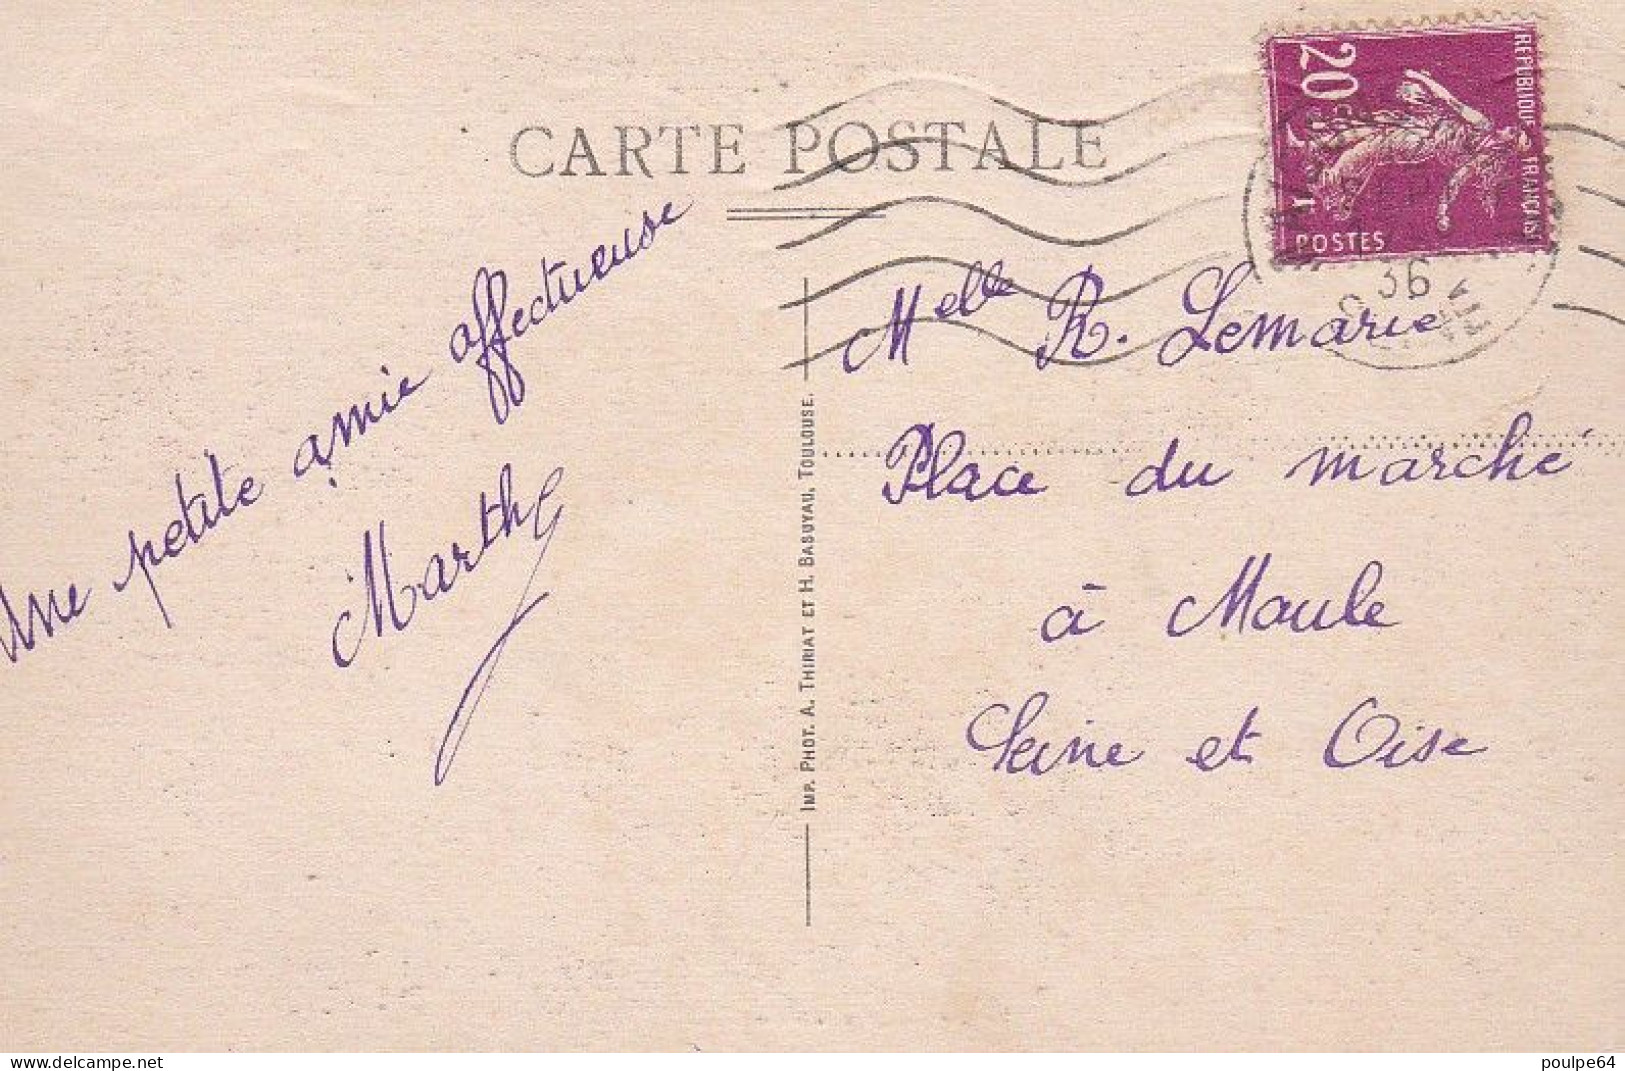 CARTE POSTALE
RÉPUBLIQUE FRANÇAISE
20
POSTES
36
Une petite amie affectueuse
Marthe
IMP. PHOT. A. THIRIAT ET H. BASUYAU, TOULOUSE.
Melle R. Lemarie
Place du marché
à Maule
Seine et Oise
delcampe.net
poulpe64